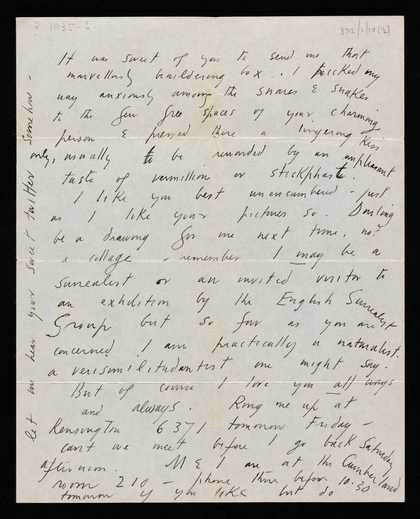 ? 1935-6
It was sweet of you to send me that
marvellously bewildering box. I picked my
way anxiously among the snares & snakes
to the few free spaces of your charming
person & pressed there a lingering kiss
only, usually to be rewarded by an unpleasant
taste of vermillion or stickphast.
I like you best unencumbered - just
as I like your pictures so. Darling
be a drawing for me next time, no?
a collage - remember I may be a
surrealist or an invited visitor to
an exhibition by the English Surrealist
Group but so far as you are
concerned I am practically a naturalist.
a verisimilitudantist one might say.
But of course I love you all ways
and always. Ring me up at
Kensington 6371 tomorrow Friday -
cant we meet before I go back Saturday
afternoon. M & I are at the Cumberland
room 210 - phone there before 10.30
tomorrow if you like but do
let me hear your sweet twitter somehow -